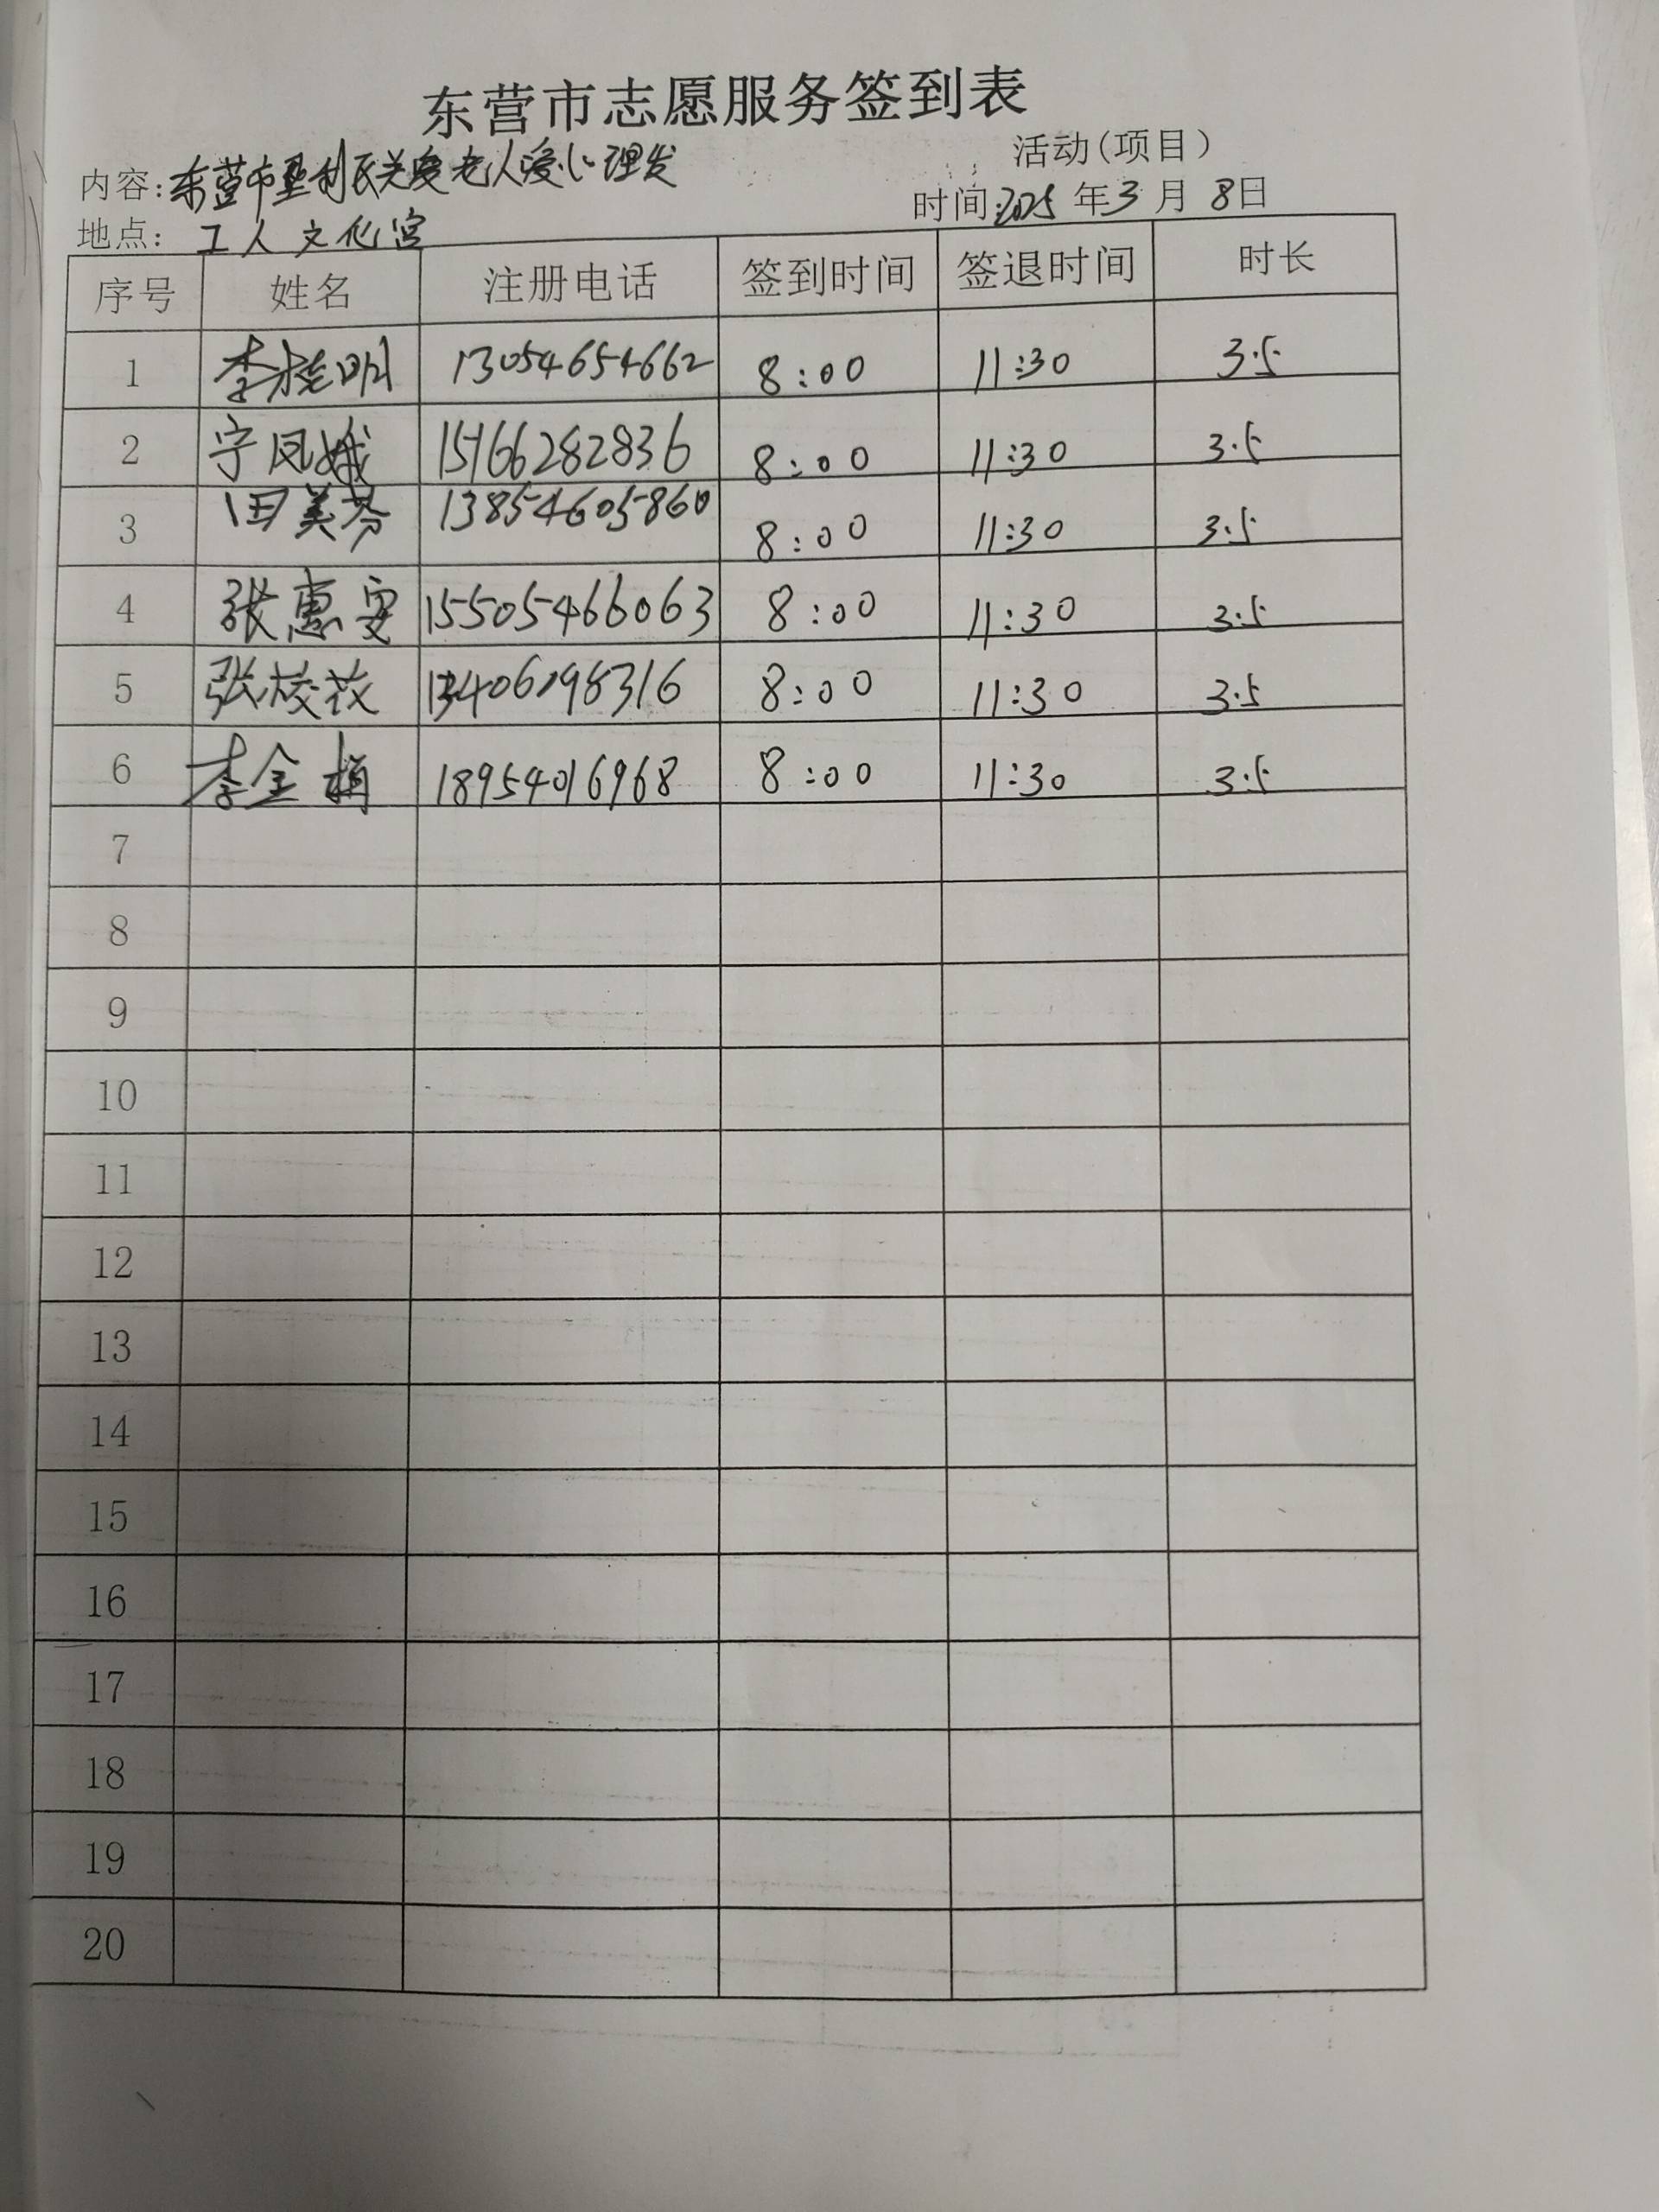 东营市志愿服务签到表
内容:东营市垦利区关爱老人爱心理发 活动(项目)
地点: 工人文化宫 时间:2025年3月8日
序号 姓名 注册电话 签到时间 签退时间 时长
1 李桂明 13054654662 8:00 11:30 3.5
2 宁凤娥 15166282836 8:00 11:30 3.5
3 田美芬 13854605860 8:00 11:30 3.5
4 张惠雯 15505466063 8:00 11:30 3.5
5 8:00 11:30 3.5
6 18954016968 8:00 11:30 3.5
7
8
9
10
11
12
13
14
15
16
17
18
19
20